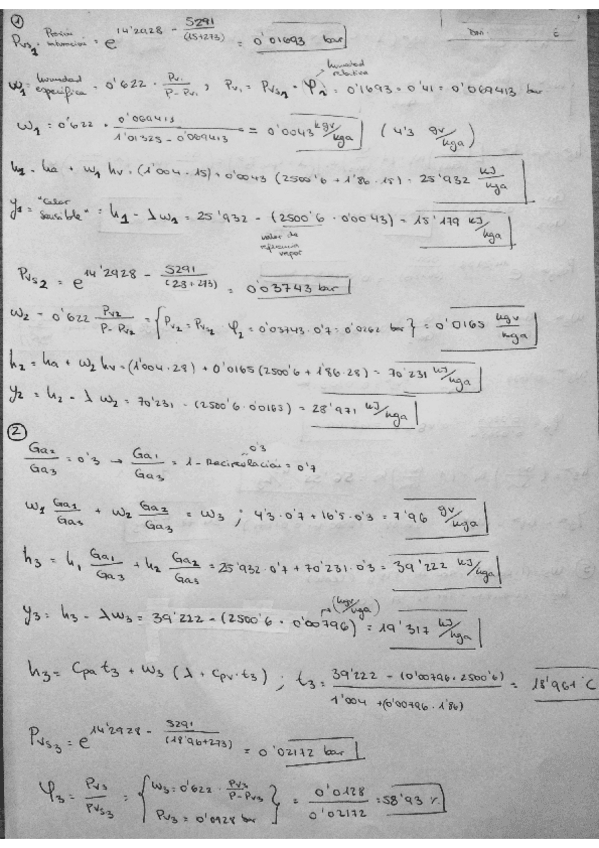 ①
Pvs1 = Presión saturación = e^(14'2928 - 5291/(15+273)) = 0'01693 bar
ω1 = humedad específica = 0'622 · Pv1/(P-Pv1) ; Pv1 = Pvs1 · φ1 = 0'1693 · 0'41 = 0'069413 bar
humedad relativa
ω1 = 0'622 · 0'069413/(1'01325 - 0'069413) = 0'0043 kgv/kga (4'3 gv/kga)
h1 = ha + ω1 hv = (1'004 · 15) + 0'0043 (2500'6 + 1'86 · 15) = 25'932 kJ/kga
y1 = "Calor sensible" = h1 - λω1 = 25'932 - (2500'6 · 0'0043) = 15'179 kJ/kga
Pvs2 = e^(14'2928 - 5291/(28+273)) = 0'03743 bar
ω2 = 0'622 Pv2/(P-Pv2) = {Pv2 = Pvs2 φ2 = 0'03743 · 0'7 = 0'0262 bar} = 0'0165 kgv/kga
h2 = ha + ω2 hv = (1'004 · 28) + 0'0165 (2500'6 + 1'86 · 28) = 70'231 kJ/kga
y2 = h2 - λ ω2 = 70'231 - (2500'6 · 0'0165) = 28'971 kJ/kga
②
Ga2/Ga3 = 0'3 → Ga1/Ga3 = 1 - Recirculación = 0'7
0'3
ω1 Ga1/Ga3 + ω2 Ga2/Ga3 = ω3 ; 4'3 · 0'7 + 16'5 · 0'3 = 7'96 gv/kga
h3 = h1 Ga1/Ga3 + h2 Ga2/Ga3 = 25'932 · 0'7 + 70'231 · 0'3 = 39'222 kJ/kga
y3 = h3 - λω3 = 39'222 - (2500'6 · 0'00796) = 19'317 kJ/kga
(kgv/kga)
h3 = Cpa t3 + ω3 (λ + Cpv · t3) ; t3 = (39'222 - (0'00796 · 2500'6))/(1'004 + (0'00796 · 1'86)) = 18'961 °C
Pvs3 = e^(14'2928 - 5291/(18'96+273)) = 0'02172 bar
φ3 = Pv3/Pvs3 = {ω3 = 0'622 · Pv3/(P-Pv3)
Pv3 = 0'0128 bar} = 0'0128/0'02172 = 58'93 %